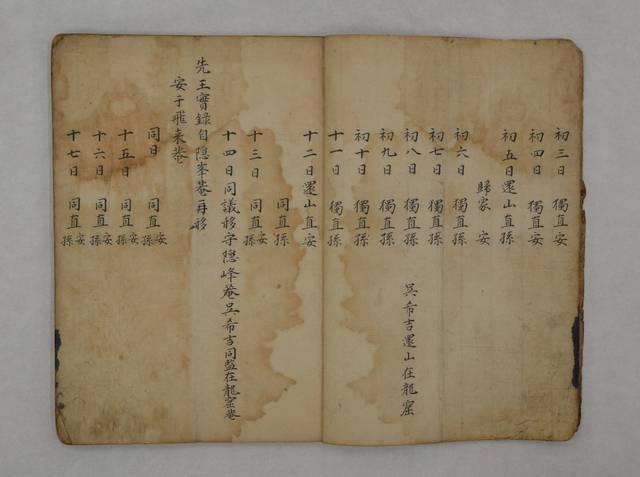 初三日 獨直 安
初四日 獨直 安
初五日 還山 直 孫
歸家 安
初六日 獨直 孫
初七日 獨直 孫
初八日 獨直 孫 吳希吉還山在龍窟
初九日 獨直 孫
初十日 獨直 孫
十一日 獨直 孫
十二日 還山 直 安
同直 孫
十三日 同直 安孫
十四日 同議移守隠峰菴吳希吉同監在龍窟菴
先王實録自隠峯菴再移
安于飛来菴
同日 同直 安孫
十五日 同直 安孫
十六日 同直 安孫
十七日 同直 安孫